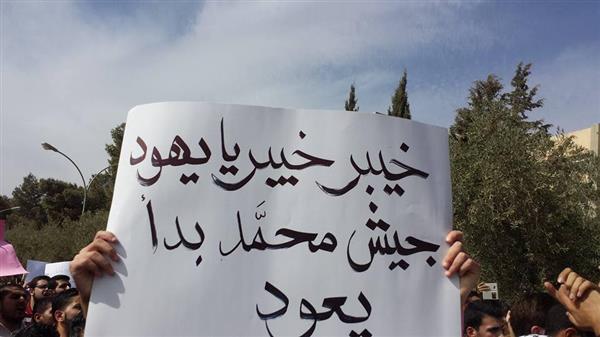 خيبر خيبر يا يهود
جيش محمَّد بدأ
يعود